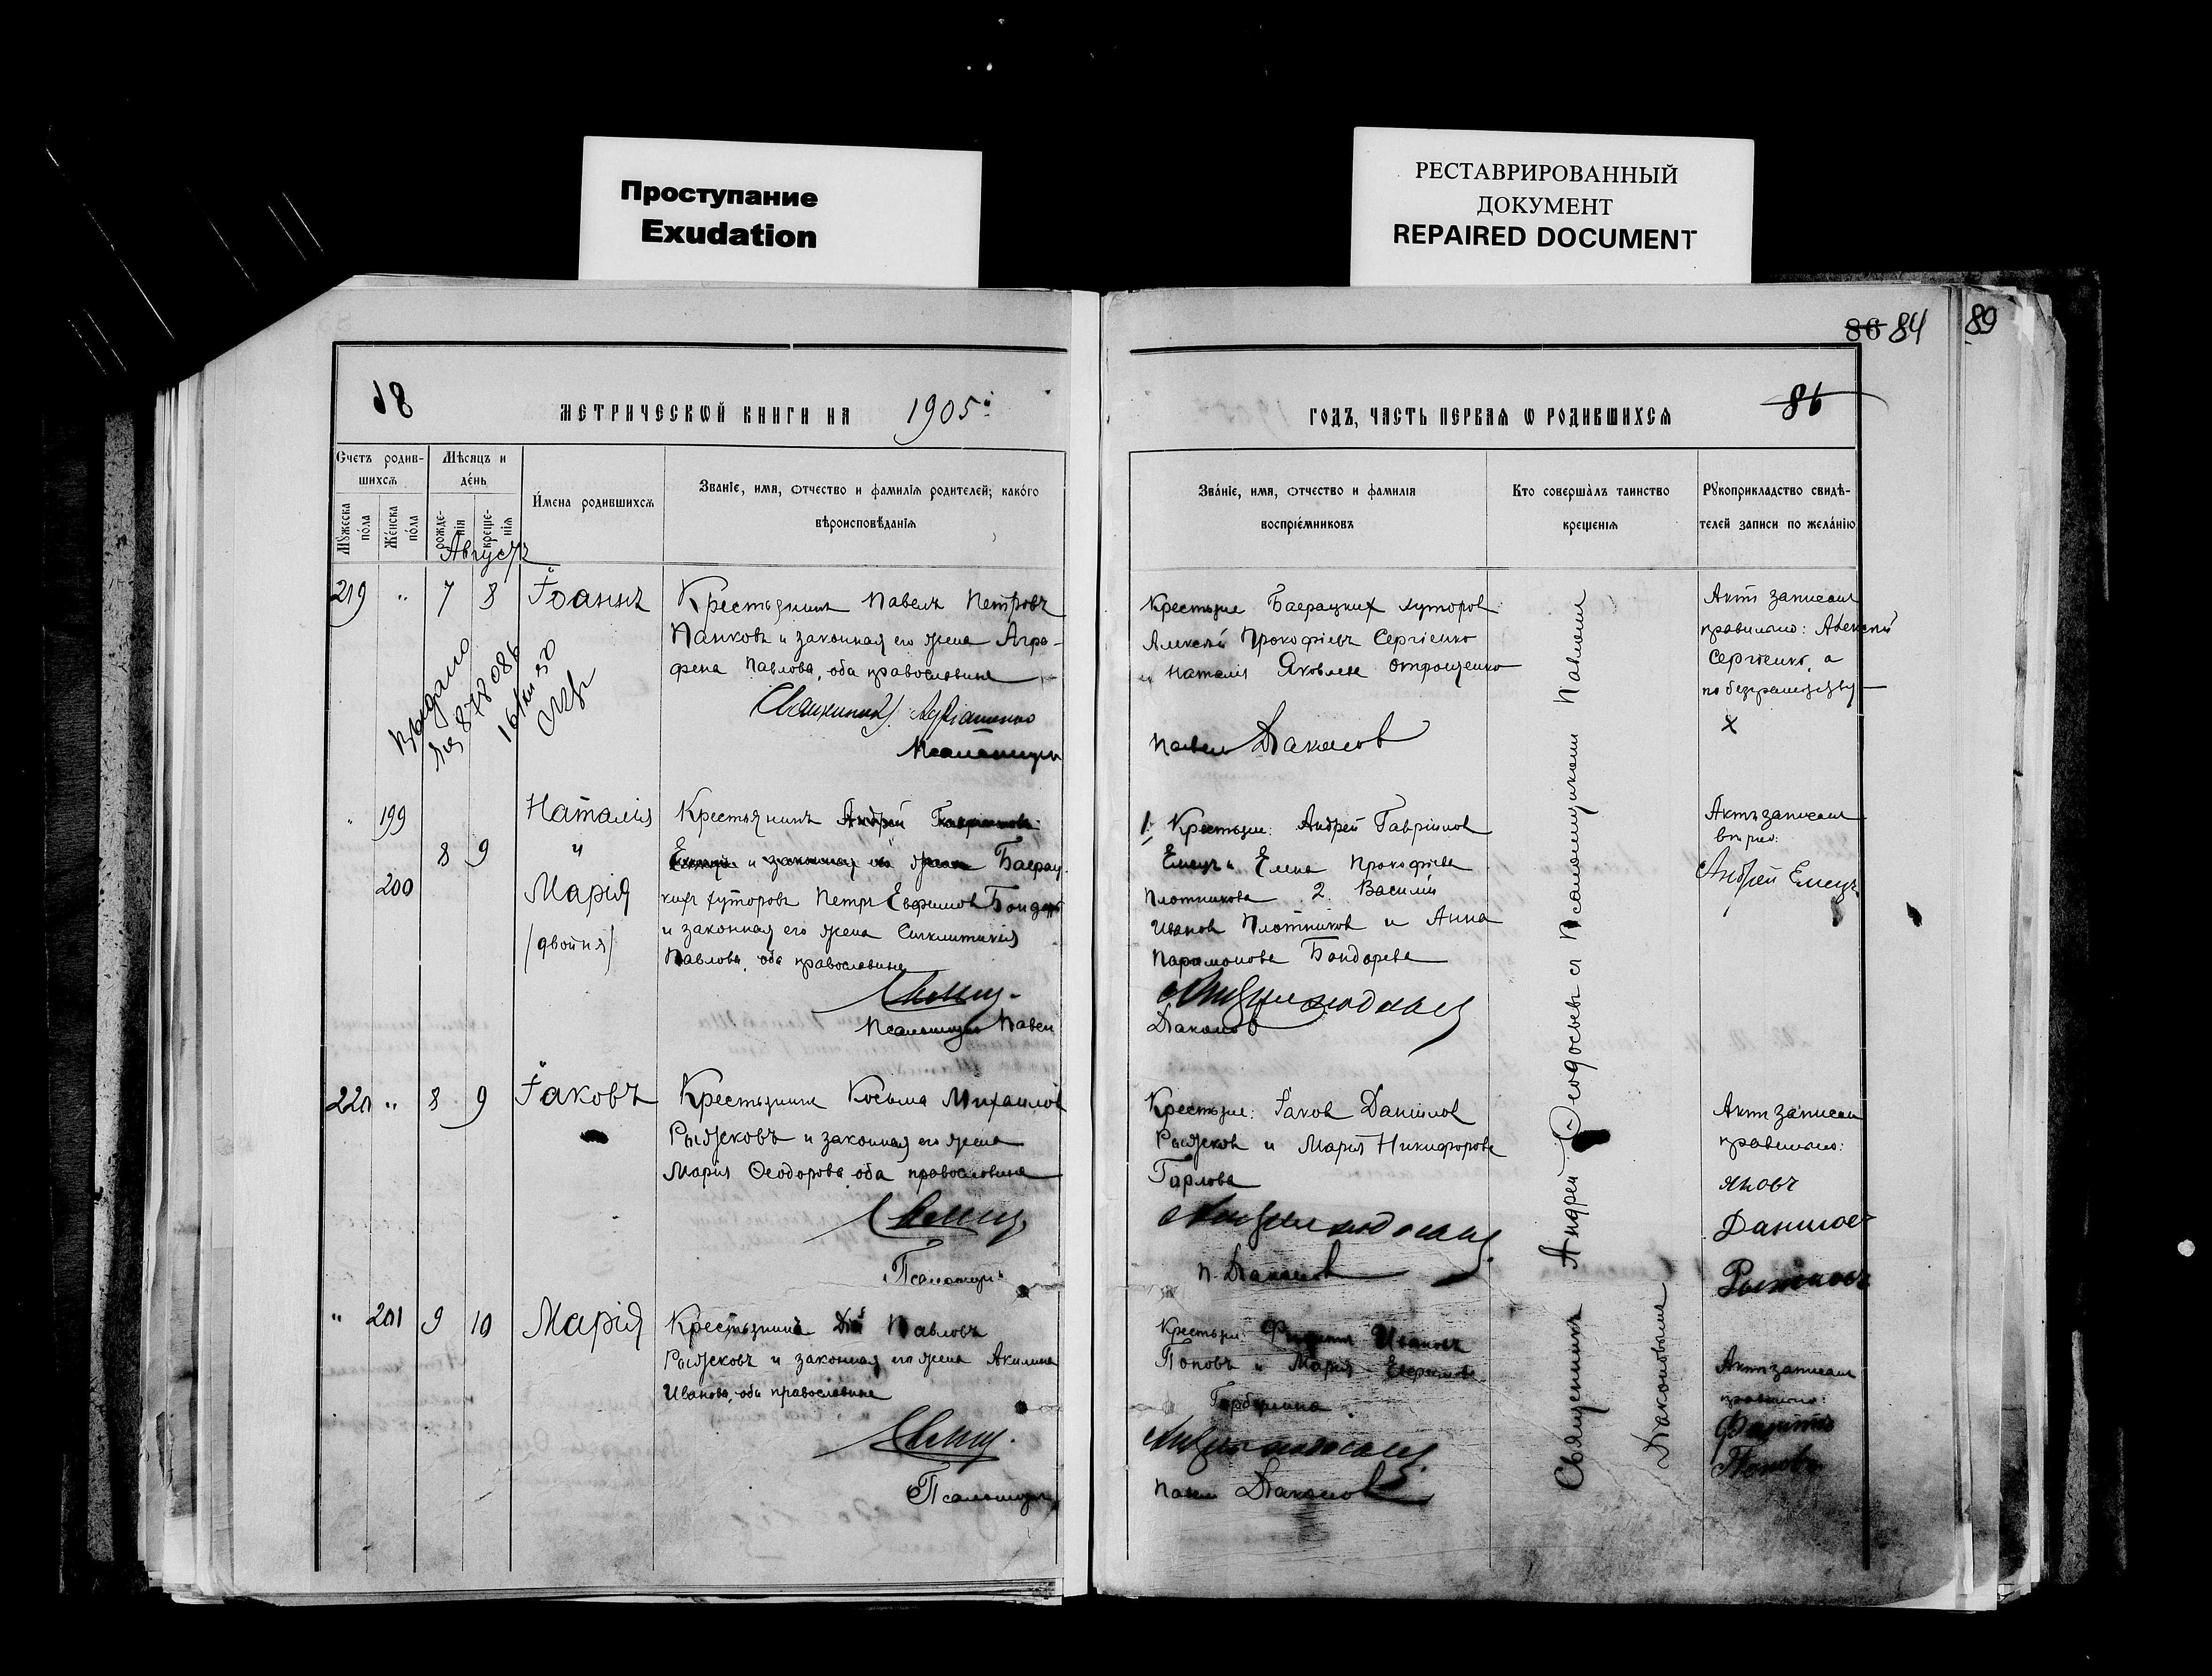 Проступание
Exudation
РЕСТАВРИРОВАННЫЙ
ДОКУМЕНТ
REPAIRED DOCUMENT
86 84
89
68
МЕТРИЧЕСКОЙ КНИГИ НА 1905
ГОДЪ, ЧАСТЬ ПЕРВАЯ Ѡ РОДИВШИХСЯ
86
Счетъ родив-
шихся
Мѣсяцъ и
де́нь
Мꙋжеска
по́ла
Же́нска
по́ла
рожде-
нія
креще-
нія
И́мена родившихся
Званіе, имя, отчество и фамилія родителей; како́го
вѣроисповѣданія
Августъ
Зва́ніе, имя, отчество и фамилія
воспріе́мниковъ
Кто соверша̀лъ таинство
крещенія
Рꙋкоприкладство свидѣ-
телей записи по жела́нію
219 " 7 8 Іоаннъ
Крестьянинъ Павелъ Петровъ
Панковъ и законная его жена Агра-
фена Павлова, оба православные
Псаломщикъ
Выдано
Крестьяне Баерацкихъ хуторовъ
Алексѣй Прокофіевъ Сергіенко
и Наталія Яковлева Отрощенко
Павелъ Діаконовъ
Актъ записанъ
правильно: Алексѣй
Сергіенко, а
по безграмотству
х
" 199 8 9 Наталія
"
200 Марія
(двойня)
Крестьянинъ Андрей Гавріиловъ
Емецъ и законная его жена Баерац-
кихъ хуторовъ Петръ Евфимовъ Бондар
и законная его жена Синклитикія
Павлова, оба православные
Псаломщикъ Павелъ
1. Крестьяне: Андрей Гавріиловъ
Емецъ и Елена Прокофіева
Плотникова 2. Василій
Ивановъ Плотниковъ и Анна
Парамонова Бондарева
Діаконовъ
Актъ записанъ
вѣрно:
Андрей Емецъ
220 " 8 9 Іаковъ
Крестьянинъ Косьма Михаиловъ
Рыжковъ и законная его жена
Марія Ѳеодорова, оба православные
Псаломщикъ
Крестьяне: Іаковъ Даниловъ
Рыжковъ и Марія Никифорова
Горлова
П. Діаконовъ
Актъ записанъ
правильно:
Яковъ
Даниловъ
Рыжковъ
" 201 9 10 Марія
Крестьянинъ Павловъ
Рыжковъ и законная его жена Акилина
Иванова, оба православные
Псаломщикъ
Крестьяне Ивановъ
Поповъ и Марія
Павелъ Діаконовъ
Актъ записанъ
правильно:
Поповъ
Священникъ Андрей Ѳеодосьевъ съ Псаломщикомъ Павломъ
Діаконовымъ